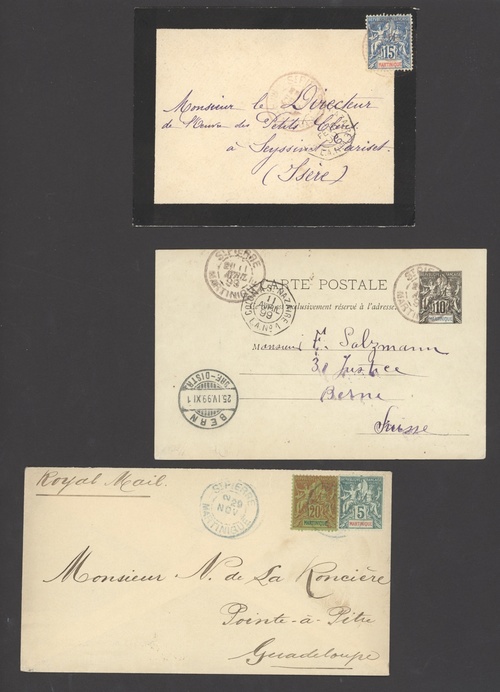 15
MARTINIQUE
ST PIERRE
Monsieur le Directeur
de l'œuvre des Petits Clercs
à Seyssinet Pariset
(Isère)
ST PIERRE
11
AVRIL
99
MARTINIQUE
CARTE POSTALE
exclusivement réservé à l'adresse
10
ST NAZAIRE
11
AVRIL
99
L.A. No 1
Monsieur E. Salzmann
30 Justice
Berne
Suisse
BERN
25.IV.99.XI.1
Royal Mail.
ST PIERRE
29
NOV
MARTINIQUE
20
MARTINIQUE
5
MARTINIQUE
Monsieur N. de La Roncière
Pointe-à-Pitre
Guadeloupe